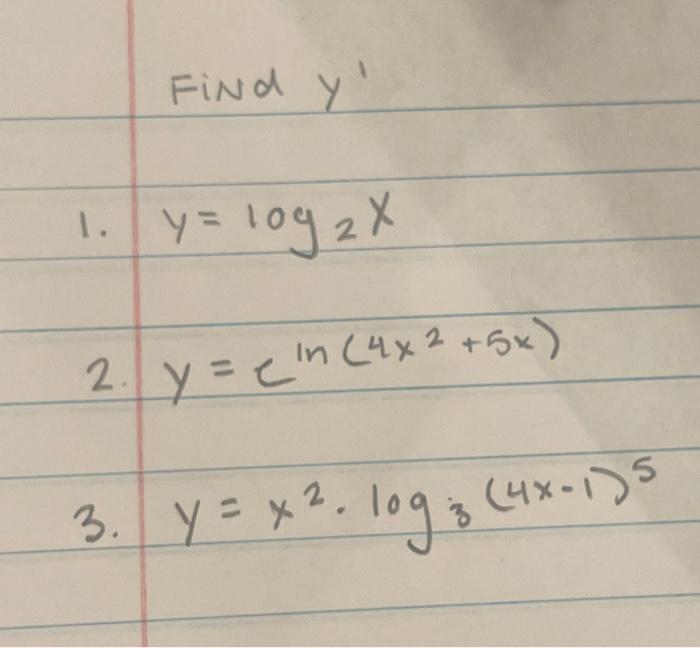 Find y'
1. y = log₂ x
2. y = e^ln(4x² + 5x)
3. y = x² · log₃ (4x-1)⁵